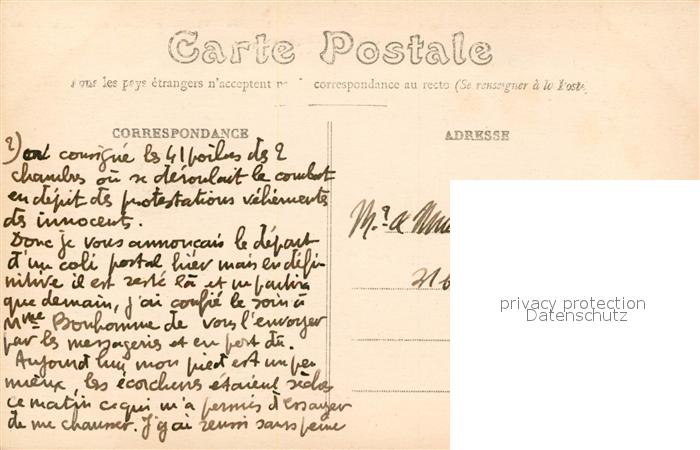 Carte Postale
Tous les pays étrangers n'acceptent pas la correspondance au recto (Se renseigner à la Poste)
CORRESPONDANCE
ADRESSE
2) ont consigné les 41 poilus des 2
chambres où se déroulait le combat
en dépit des protestations véhémentes
des innocents.
Donc je vous annonçais le départ
d'un coli postal hier mais en défi-
nitive il est resté là et ne partira
que demain, j'ai confié le soin à
Mme Bonhomme de vous l'envoyer
par les messageries et en port dû.
Aujourd'hui mon pied est un peu
mieux, les écorchures étaient sèches
ce matin ce qui m'a permis d'essayer
de me chausser. J'y ai réussi sans peine
Mr & Mme
21
privacy protection
Datenschutz